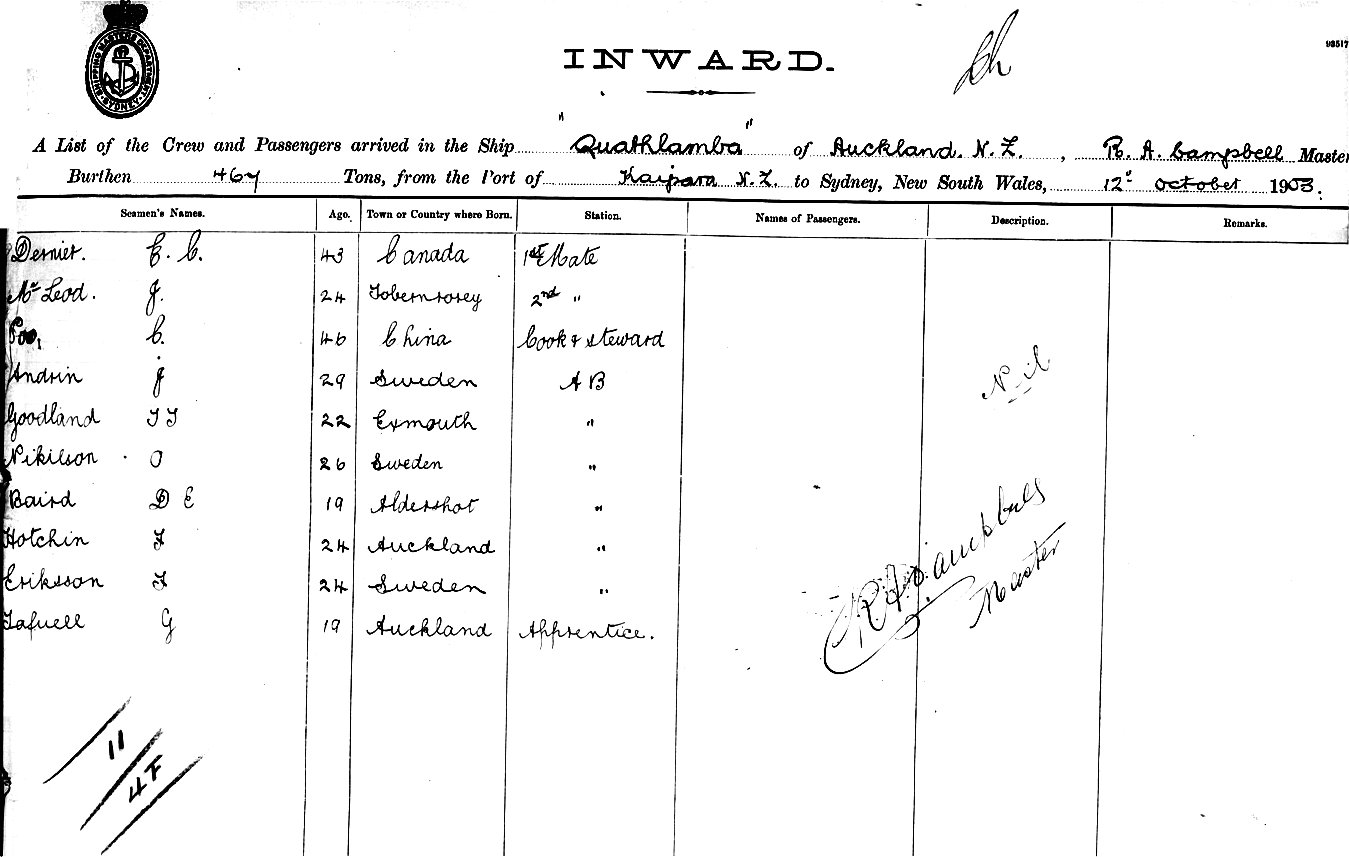 SHIPPING MASTERS DEPARTMENT SYDNEY
INWARD.
93517
A List of the Crew and Passengers arrived in the Ship "Quathlamba" of Auckland. N.Z., R. A. Campbell Master
Burthen 467 Tons, from the Port of Kaipara N.Z. to Sydney, New South Wales, 12th October 1903.
Seamen's Names. Age. Town or Country where Born. Station. Names of Passengers. Description. Remarks.
Dernier. E. C. 43 Canada 1st Mate
McLeod. J. 24 Tobermorey 2nd "
C. 46 China Cook & Steward
Andrin J 29 Sweden A B
Nil
Goodland T T 22 Exmouth "
Nikilson O 26 Sweden "
Baird D E 19 Aldershot "
Hotchin F 24 Auckland "
Eriksson F 24 Sweden "
G 19 Auckland Apprentice.
R A Campbell
Master
11
4F